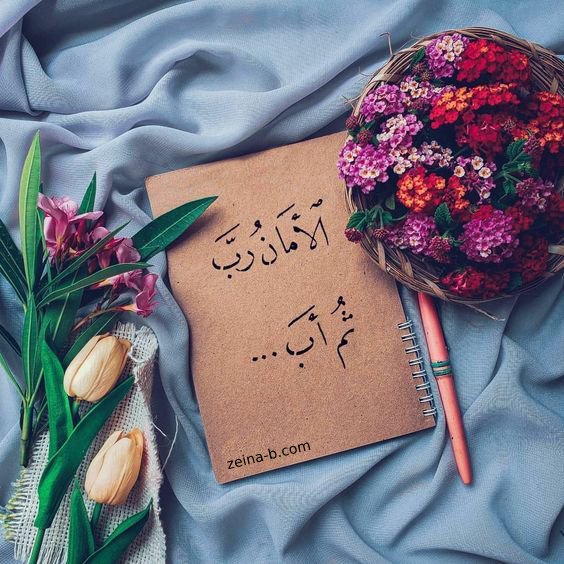 ٱلأمَان رُبَّ
ثُم أَبَ ...
zeina-b.com